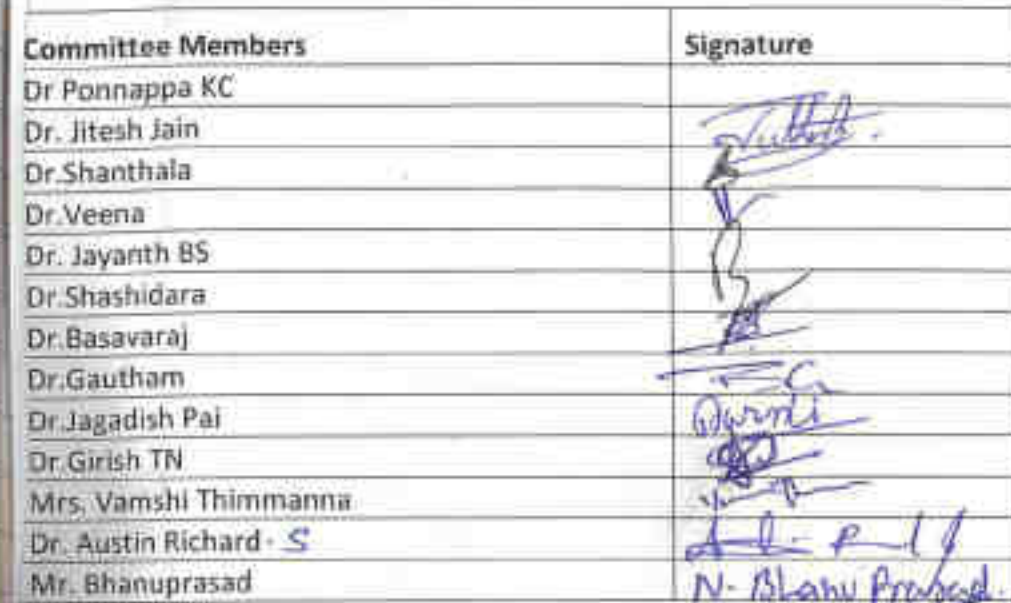 Committee Members Signature
Dr Ponnappa KC
Dr. Jitesh Jain
Dr.Shanthala
Dr.Veena
Dr. Jayanth BS
Dr.Shashidara
Dr.Basavaraj
Dr.Gautham
Dr.Jagadish Pai
Dr.Girish TN
Mrs. Vamshi Thimmanna
Dr. Austin Richard - S
Mr. Bhanuprasad N. Bhanu Prasad.